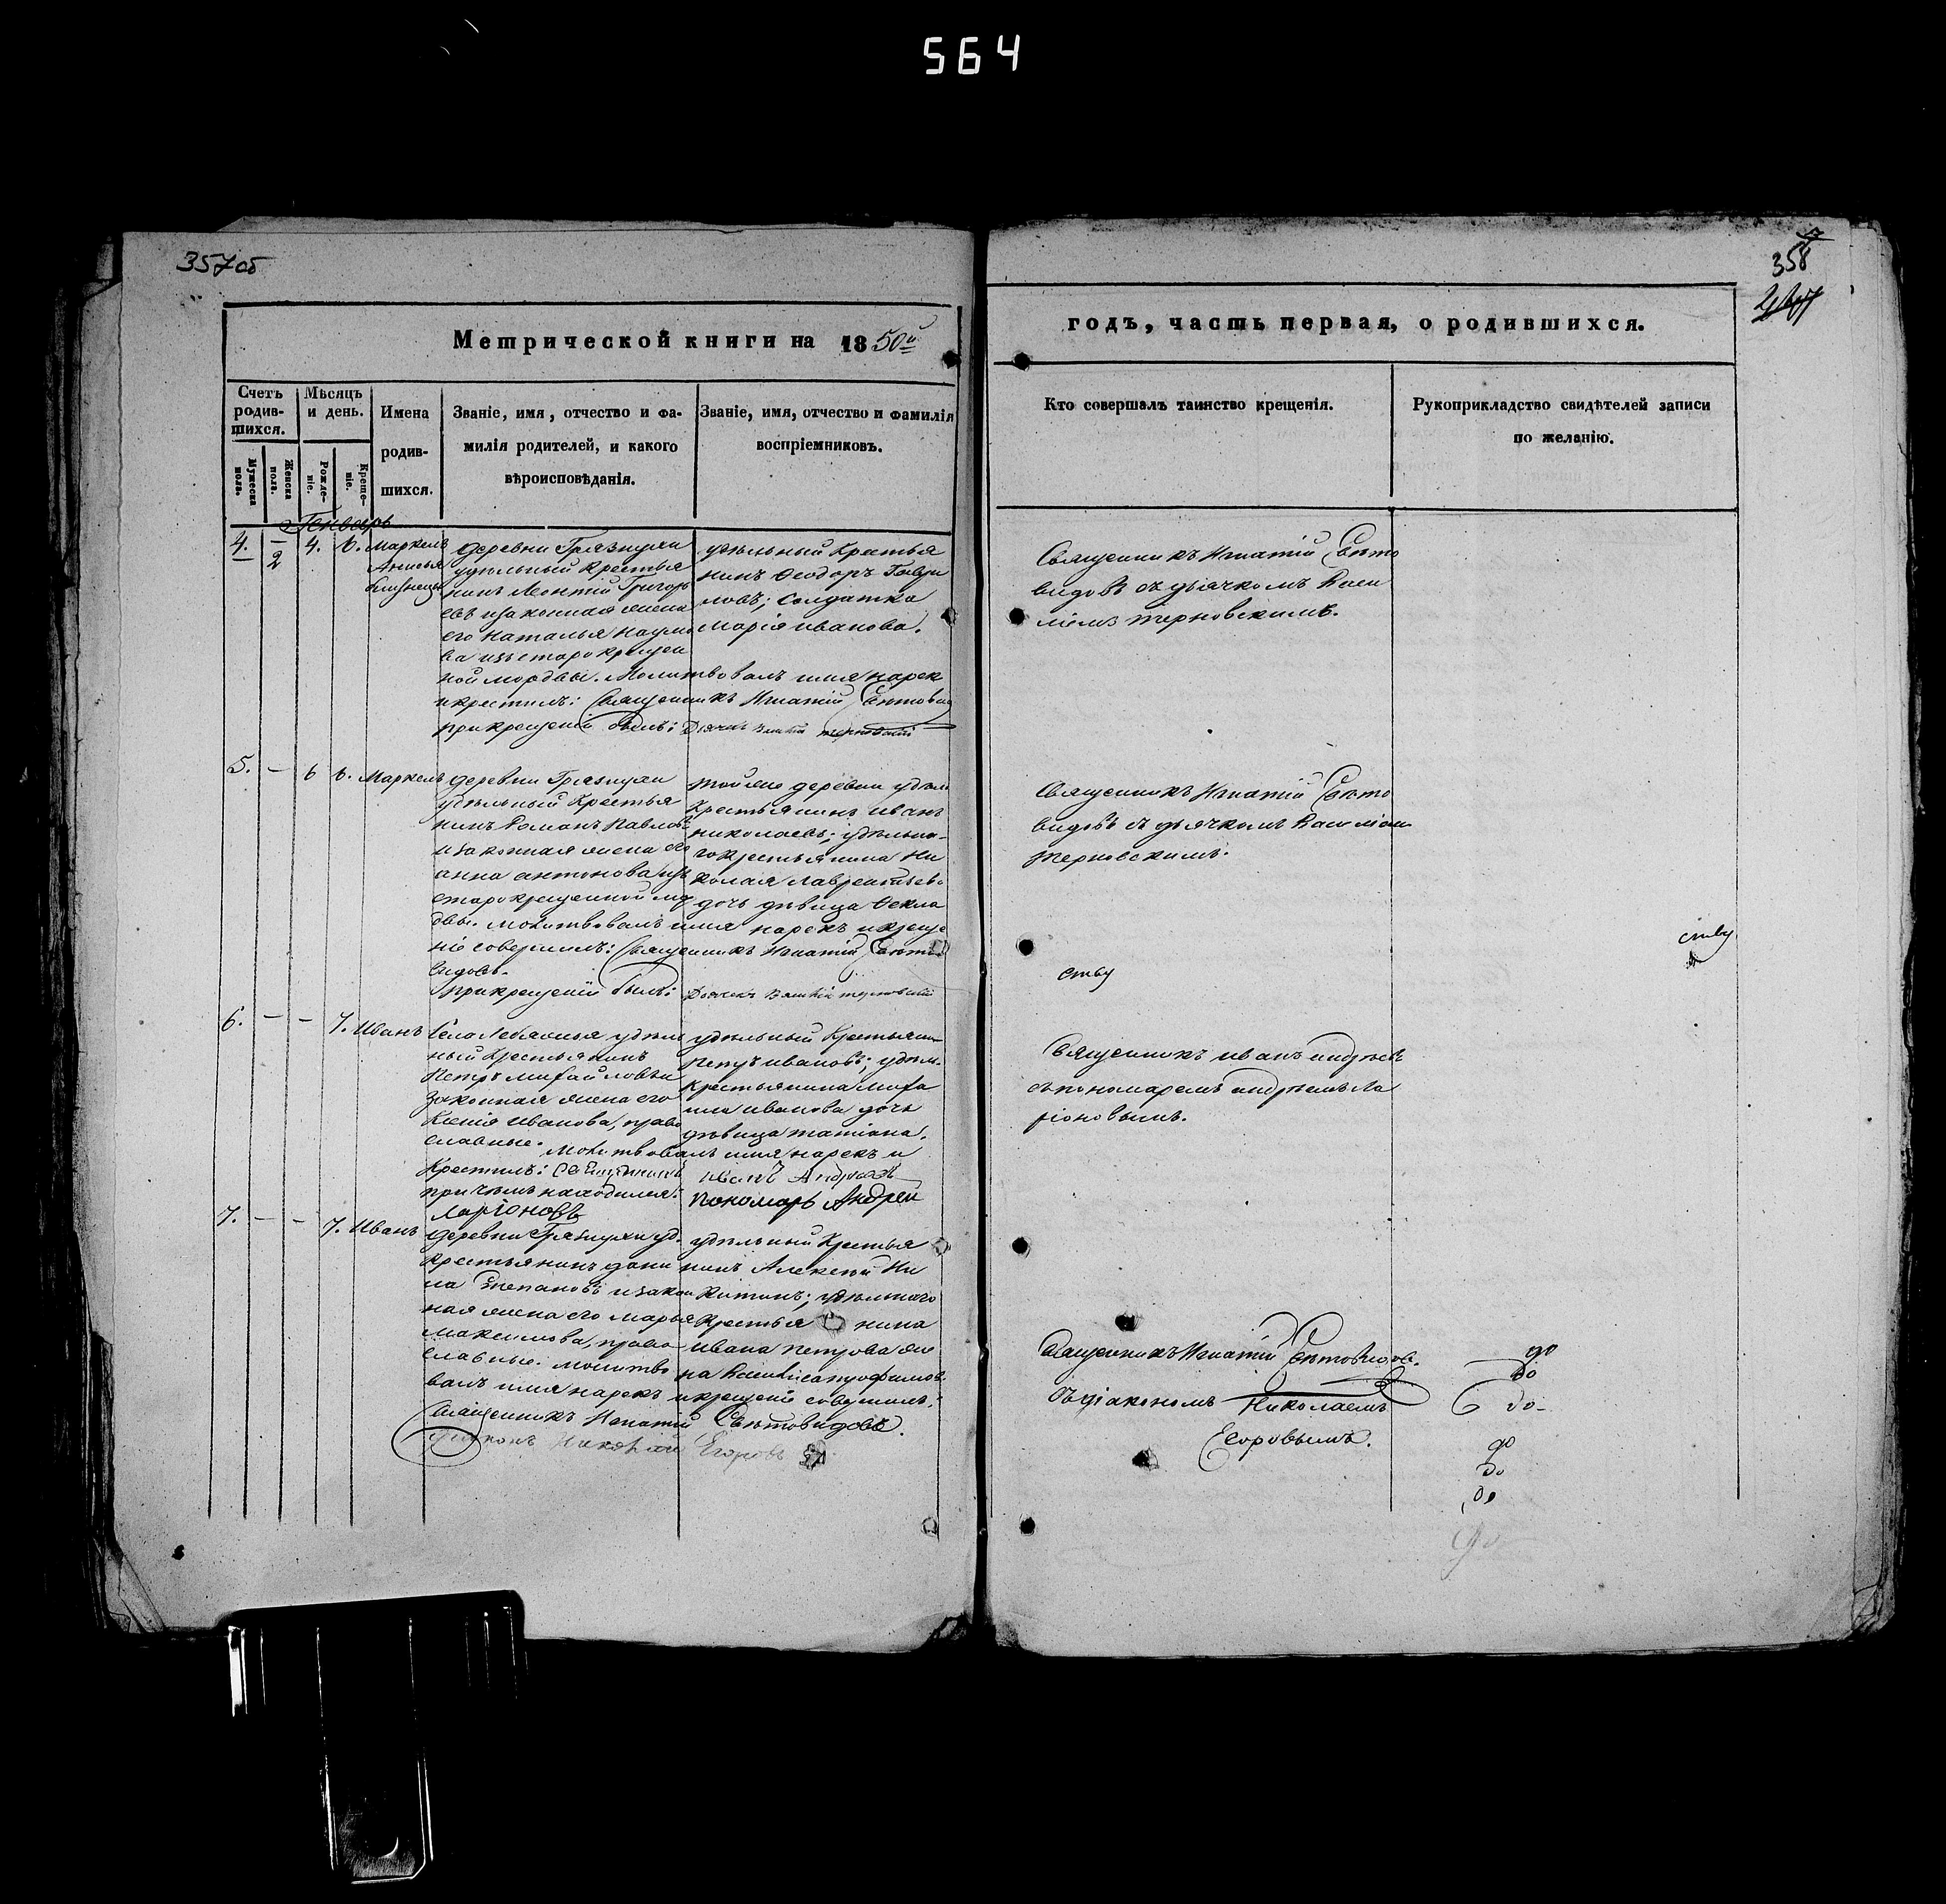 564
357об
358
Метрической книги на 1850й
годъ, часть первая, о родившихся.
Счетъ родив-шихся.
Мужеска пола.
Женска пола.
Мѣсяцъ и день.
Рожде-ніе.
Креще-ніе.
Имена родив-шихся.
Званіе, имя, отчество и фа-
милія родителей, и какого
вѣроисповѣданія.
Званіе, имя, отчество и фамилія
воспріемниковъ.
Кто совершалъ таинство крещенія.
Рукоприкладство свидѣтелей записи
по желанію.
Генварь
4. – 2 4. 6. Маркелъ
Анисья
близнецы
деревни Грязнухи
удѣльный крестья
нинъ Леонтій Григорь
евъ и законная жена
его Наталья Наумо
ва изъ старокрещен
ной мордвы. Молитвовалъ имя нарек
и крестилъ: Священникъ Игнатій Свѣтовид
при крещеніи былъ: Дьячекъ Василій Терновскій
удѣльный крестья
нинъ Ѳеодоръ Гаври
ловъ; солдатка
Марія Иванова.
Священникъ Игнатій Свѣто
видовъ съ дьячкомъ Васи
ліемъ Терновскимъ.
5. – 6 6. Маркелъ
деревни Грязнухи
удѣльный крестья
нинъ Романъ Павловъ
и законная жена его
Анна Антонова изъ
старокрещенной мор
двы. Молитвовалъ имя нарекъ и креще
ніе совершилъ: Священникъ Игнатій Свѣто
видовъ.
При крещеніи былъ: Дьячекъ Василій Терновскій
той же деревни удѣль
крестьянинъ Иванъ
Николаевъ; удѣльна-
го крестьянина Ни
колая Лаврентьева
дочь дѣвица Ѳекла
Священникъ Игнатій Свѣто
видовъ съ дьячкомъ Василіем
Терновскимъ.
ству
ству
6. – – 7. Иванъ
Села Лебяжья удѣль
ный крестьянинъ
Петръ Михайловъ и
законная жена его
Ксенія Иванова, право
славные. Молитвовалъ имя нарекъ и
крестилъ: Священникъ Иванъ Андреевъ
при чемъ находился: пономарь Андрей
Ларіоновъ
удѣльный крестьянин
Петръ Ивановъ; удѣль.
крестьянина Миха
ила Иванова дочь
дѣвица Татіана.
Священникъ Иванъ Андреевъ
съ пономаремъ Андреемъ Ла
ріоновымъ.
7. – – 7. Иванъ
деревни Грязнухи уд.
крестьянинъ Дани
ла Степановъ и закон
ная жена его Марья
Максимова, право
славные. Молитво
валъ имя нарекъ и крещеніе совершилъ:
Священникъ Игнатій Свѣтовидовъ.
Діаконъ Николай Егоровъ
удѣльный крестья
нинъ Алексѣй Ни
китинъ; удѣльнаго
крестья нина
Ивана Петрова же
на Василиса Трофимов
Священникъ Игнатій Свѣтовидовъ.
Съ діакономъ Николаемъ
Егоровымъ.
до
до
до-
до
до
до